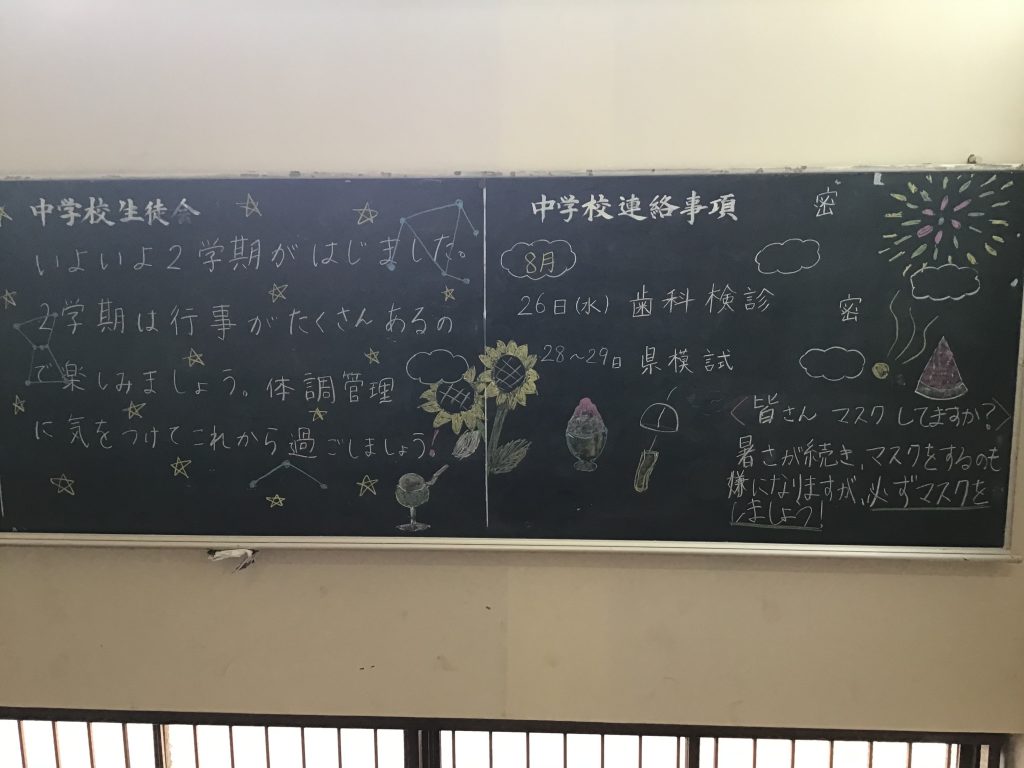 中学校生徒会
いよいよ2学期がはじまました。
2学期は行事がたくさんあるの
で楽しみましょう。体調管理
に気をつけてこれから過ごしましょう!
中学校連絡事項
密
8月
26日(水) 歯科検診
密
28～29日 県模試
<皆さん マスクしてますか?>
暑さが続き、マスクをするのも
嫌になりますが、必ずマスクを
しましょう!